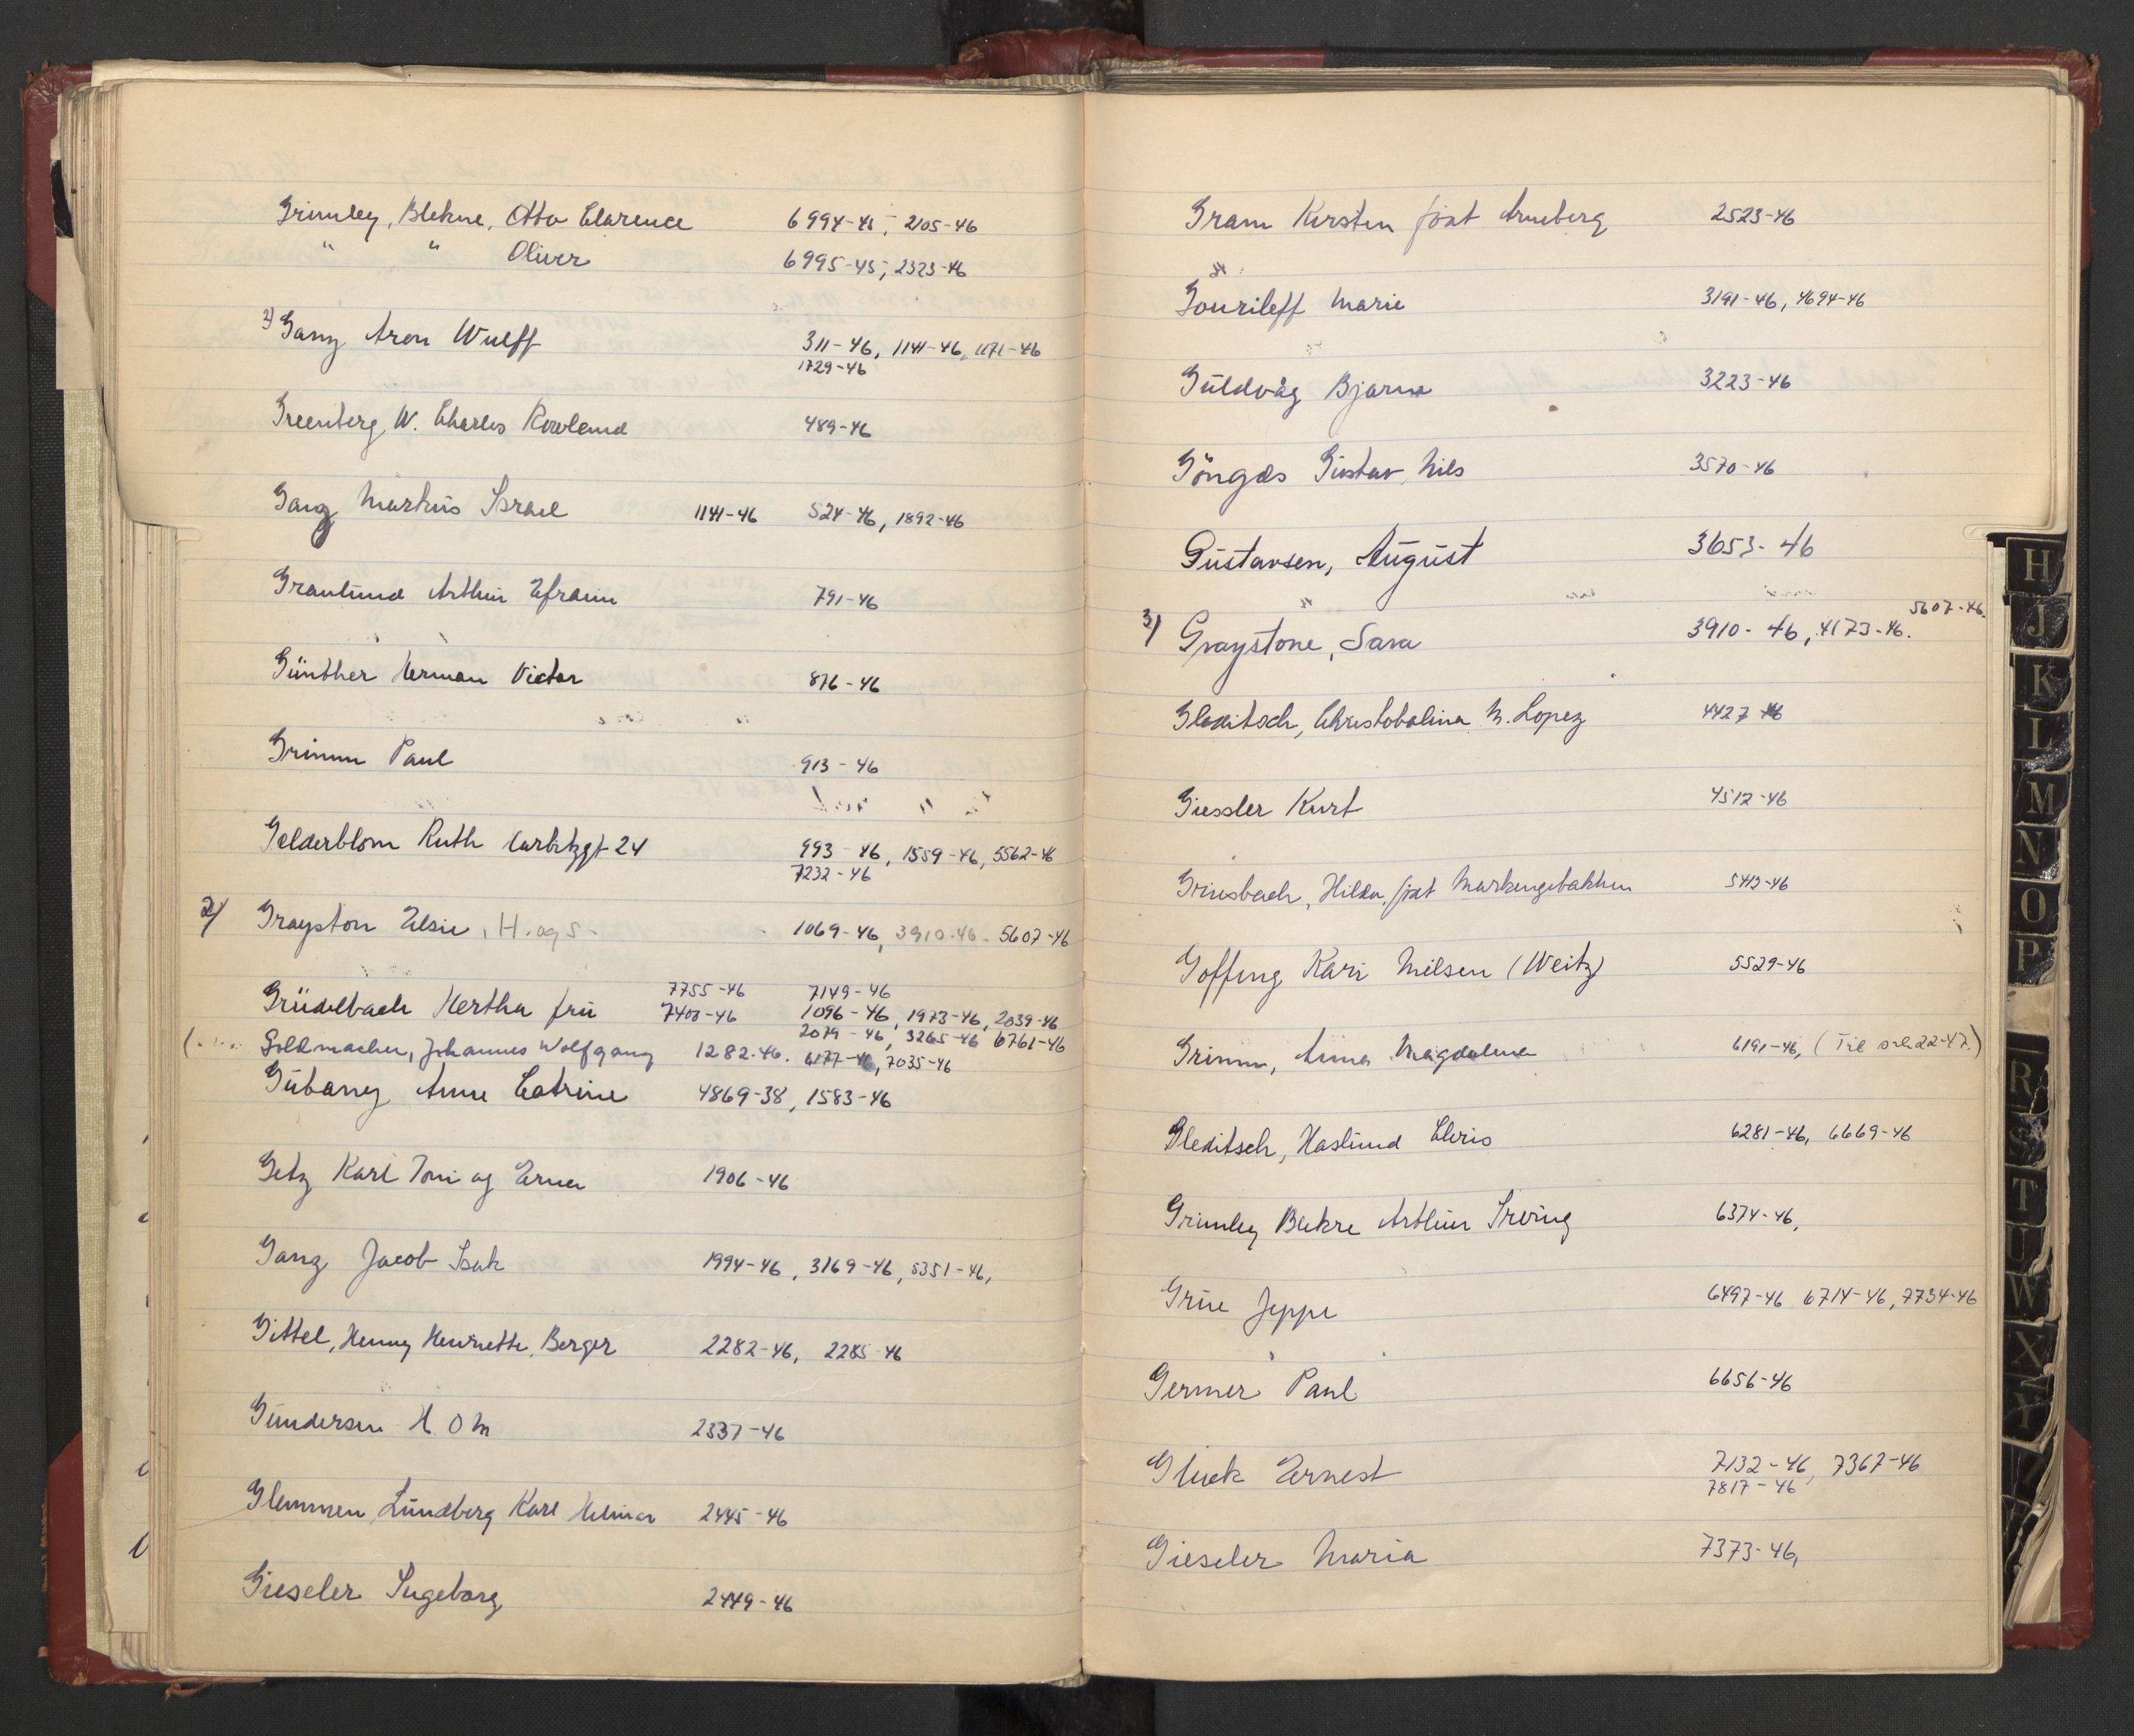 Grimley, Blekne, Otto Clarence 6994-45, 2105-46
" " Oliver 6995-45, 2323-46
2) Ganz Aron Wulff 311-46, 1141-46, 1171-46
1729-46
Greenberg, W. Charles Rowland 489-46
Ganz Markus Israel 1141-46 524-46, 1892-46
Granlund Arthur Efraim 791-46
Günther Herman Victor 876-46
Grimm Paul 913-46
Gelderblom Ruth 24 993-46, 1559-46, 5562-46
7232-46
2) Grayston Elsie, H. og S. 1069-46, 3910-46. 5607-46
7755-46 7149-46
Grüdelbach Hertha fru 7400-46 1096-46, 1973-46, 2039-46
2079-46, 3265-46 6761-46
Goldmacher, Johannes Wolfgang 1282-46. 6177-46, 7035-46
Gubany Anne Catrine 4869-38, 1583-46
Getz Karl Toni og Erna 1906-46
Ganz Jacob Isak 1994-46, 3169-46, 5351-46,
Gittel, Henny Henriette, Berger 2282-46, 2285-46
Gundersen H O M 2337-46
Glemmen Lundberg Karl Helmar 2445-46
Gieseler Ingeborg 2449-46
Gram Kirsten født Arneberg 2523-46
Gourileff Marie 3191-46, 4694-46
Guldvåg Bjarne 3223-46
Göngdes Gustav, Nils 3570-46
Gustavsen, August 3653-46
5607-46.
3) Graystone, Sara 3910-46, 4173-46.
Gleditsch, Christobalina M. Lopez 4427-46
Giessler Kurt 4512-46
Griesbach, Hilda, født Markengbakken 5413-46
Goffeng Kari Nielsen (Weitz) 5529-46
Grimm, Anna Magdalena 6191-46, (Til 22-47.)
Gleditsch, Haslund Chris 6281-46, 6669-46
Grimley Blekre Arthur Irving 6374-46,
Grüe Jeppe 6497-46 6714-46, 7734-46
Germer Paul 6656-46
Gluck Ernest 7132-46, 7367-46
7817-46
Gieseler Maria 7373-46,
H
J
K
L
M
N
O
P
R
S
T
U
W
X
Y